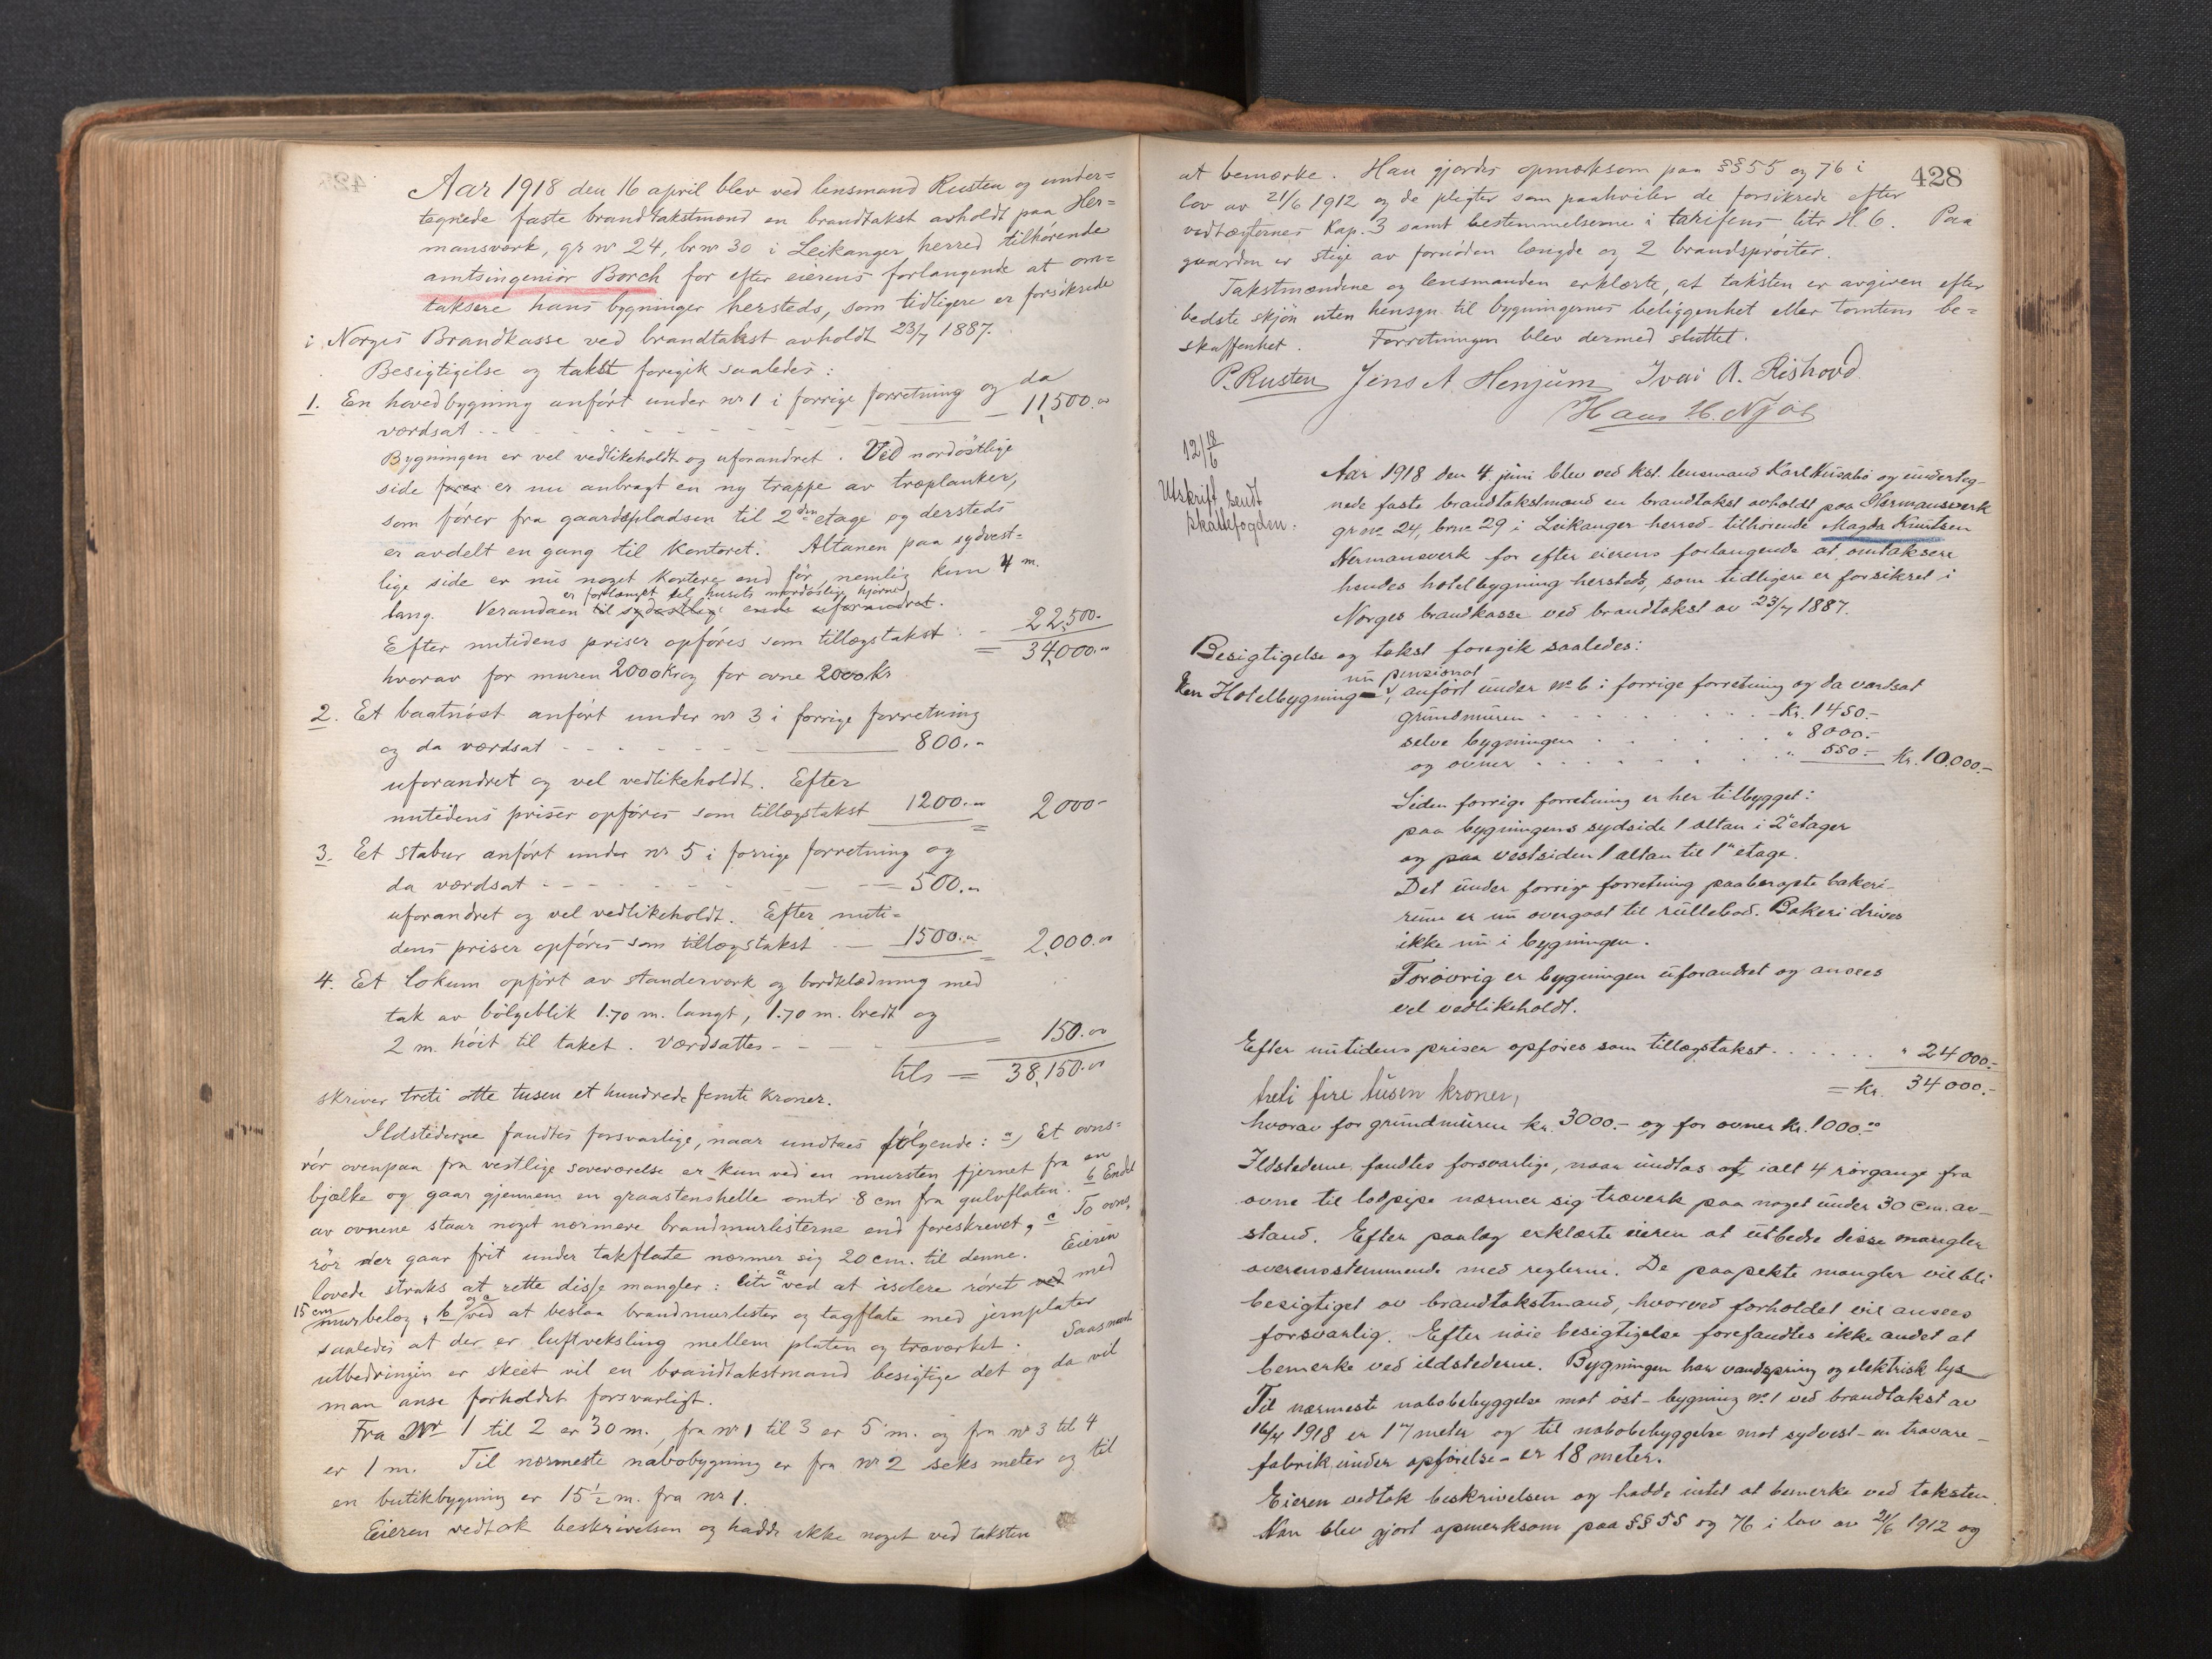 Aar 1918 den 16 april blev ved lensmand Rusten og under=
tegnede faste brandtakstmænd en brandtakst avholdt paa Her=
mansværk, gr nr 24, br nr 30 i Leikanger herred tilhørende
amtsingeniør Borch for efter eierens forlangende at om=
taksere hans bygninger hersteds, som tidligere er forsikrede
i Norges Brandkasse ved brandtakst avholdt 23/7 1887.
Besigtigelse og takst foregik saaledes:
1. En hovedbygning anført under nr 1 i forrige forretning og da
værdsat - - - 11,500.00
Bygningen er vel vedlikeholdt og uforandret. Ved nordøstlige
side fører er nu anbragt en ny trappe av træplanker,
som fører fra gaardspladsen til 2den etage og dersteds
er avdelt en gang til kontoret. Altanen paa sydvest=
lige side er nu noget kortere end før, nemlig kun 4 m.
er forlænget til husets nordøstlige hjørne
lang. Verandaen til sydøstlige ende uforandret.
Efter nutidens priser opføres som tillægstakst - 22,500.-
= 34,000.00
hvorav for muren 2000 Kr og for ovne 2000 kr
2. Et baatnøst anført under nr 3 i forrige forretning
og da værdsat - - - 800.-
uforandret og vel vedlikeholdt. Efter
nutidens priser opføres som tillægstakst 1200.- = 2000-
3. Et stabur anført under nr 5 i forrige forretning og
da værdsat - - - 500.-
uforandret og vel vedlikeholdt. Efter nuti=
dens priser opføres som tillægstakst - 1500.- = 2,000.00
4. Et lokum opført av standerværk og bordklædning med
tak av bølgeblik 1.70 m. langt, 1.70 m. bredt og
2 m. høit til taket. Værdsattes - - - = 150.00
tils = 38,150.00
skriver treti otte tusen et hundrede femti kroner.
Ildstederne fandtes forsvarlige, naar undtaes følgende: a, Et ovns=
rør ovenpaa fra vestlige soveværelse er kun ved en mursten fjernet fra en
bjælke og gaar gjennem en graastenshelle omtr 8 cm fra gulvflaten. b Endel
av ovnene staar noget nærmere brandmurlisterne end foreskrevet, c To ovns,
rør der gaar frit under takflate nærmer sig 20 cm. til denne. Eieren
lovede straks at rette disse mangler: litr a ved at isolere røret ved med
15 cm murbelæg, b og c ved at beslaa brandmurlister og tagflate med jernplater
saaledes at der er luftveksling mellem platen og træværket. Saasnart
utbedringen er skeet vil en brandtakstmand besigtige det og da vil
man anse forholdet forsvarligt.
Fra Nr 1 til 2 er 30 m., fra nr 1 til 3 er 5 m. og fra nr 3 til 4
er 1 m. Til nærmeste nabobygning er fra nr 2 seks meter og til
en butikbygning er 15½ m. fra nr 1.
Eieren vedtok beskrivelsen og hadde ikke noget ved taksten
428
at bemærke. Han gjordes opmerksom paa §§ 55 og 76 i
lov av 21/6 1912 og de pligter som paahviler de forsikrede efter
vedtægternes Kap. 3 samt bestemmelserne i tarifens litr H. 6. Paa
gaarden er stige av fornøden længde og 2 brandsprøiter.
Takstmændene og lensmanden erklærte, at taksten er avgiven efter
bedste skjøn uten hensyn til bygningernes beliggenhet eller tomtens be=
skaffenhet. Forretningen blev dermed sluttet.
P. Rusten Jens A. Henjum Ivar A. Rishovd
Hans H. Njøs
12/6 18
Utskrift sendt
skattefogden.
Aar 1918 den 4. juni blev ved kst. lensmand Karl Husabø og underteg-
nede faste brandtakstmænd en brandtakst avholdt paa Hermansverk
gr nr. 24, br nr 29 i Leikanger herred - tilhørende Magda Knutsen
Hermansverk for efter eierens forlangende at omtaksere
hendes hotelbygning hersteds, som tidligere er forsikret i
Norges brandkasse ved brandtakst av 23/7 1887.
Besigtigelse og takst foregik saaledes:
nu pensionat
En Hotelbygning, anført under nr 6 i forrige forretning og da værdsat
grundmuren . . . Kr. 1450.-
selve bygningen . . . " 8000.-
og ovner . . . " 550.- Kr. 10,000.-
Siden forrige forretning er her tilbygget:
paa bygningens sydside 1 altan i 2 etager
og paa vestsiden 1 altan til 1ste etage.
Det under forrige forretning paaberopte bakeri-
rum er nu overgaat til rullebod. Bakeri drives
ikke nu i bygningen.
Forøvrig er bygningen uforandret og ansees
vel vedlikeholdt.
Efter nutidens priser opføres som tillægstakst . . . " 24000.-
treti fire tusen kroner, = Kr. 34000.-
hvorav for grundmuren kr. 3000.- og for ovner Kr. 1000.00
Ildstederne fandtes forsvarlige, naar undtas at ialt 4 rørgange fra
ovne til lodpipe nærmer sig træverk paa noget under 30 cm. av-
stand. Efter paalæg erklærte eieren at utbedre disse mangler
overensstemmende med reglerne. De paapekte mangler vil bli
besigtiget av brandtakstmand, hvorved forholdet vil ansees
forsvarlig. Efter nøie besigtigelse forefandtes ikke andet at
bemerke ved ildstederne. Bygningen har vandspring og elektrisk lys
Til nærmeste nabobebyggelse mot øst - bygning nr. 1 ved brandtakst av
16/4 1918 er 17 meter og til nabobebyggelse mot sydvest - en trævare-
fabrik under opførelse - er 18 meter.
Eieren vedtok beskrivelsen og hadde intet at bemerke ved taksten.
Han blev gjort opmerksom paa §§ 55 og 76 i lov av 21/6 1912 og